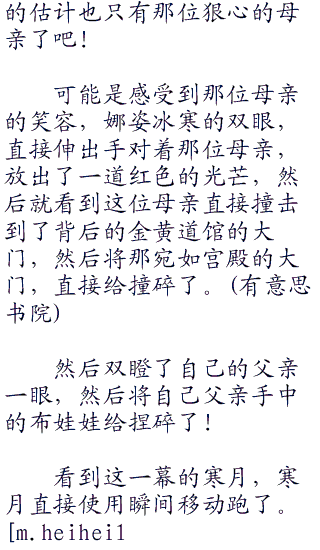 的估计也只有那位狠心的母
亲了吧！
可能是感受到那位母亲
的笑容，娜姿冰寒的双眼，
直接伸出手对着那位母亲，
放出了一道红色的光芒，然
后就看到这位母亲直接撞击
到了背后的金黄道馆的大
门，然后将那宛如宫殿的大
门，直接给撞碎了。(有意思
书院)
然后双瞪了自己的父亲
一眼，然后将自己父亲手中
的布娃娃给捏碎了！
看到这一幕的寒月，寒
月直接使用瞬间移动跑了。
[m.heihei1